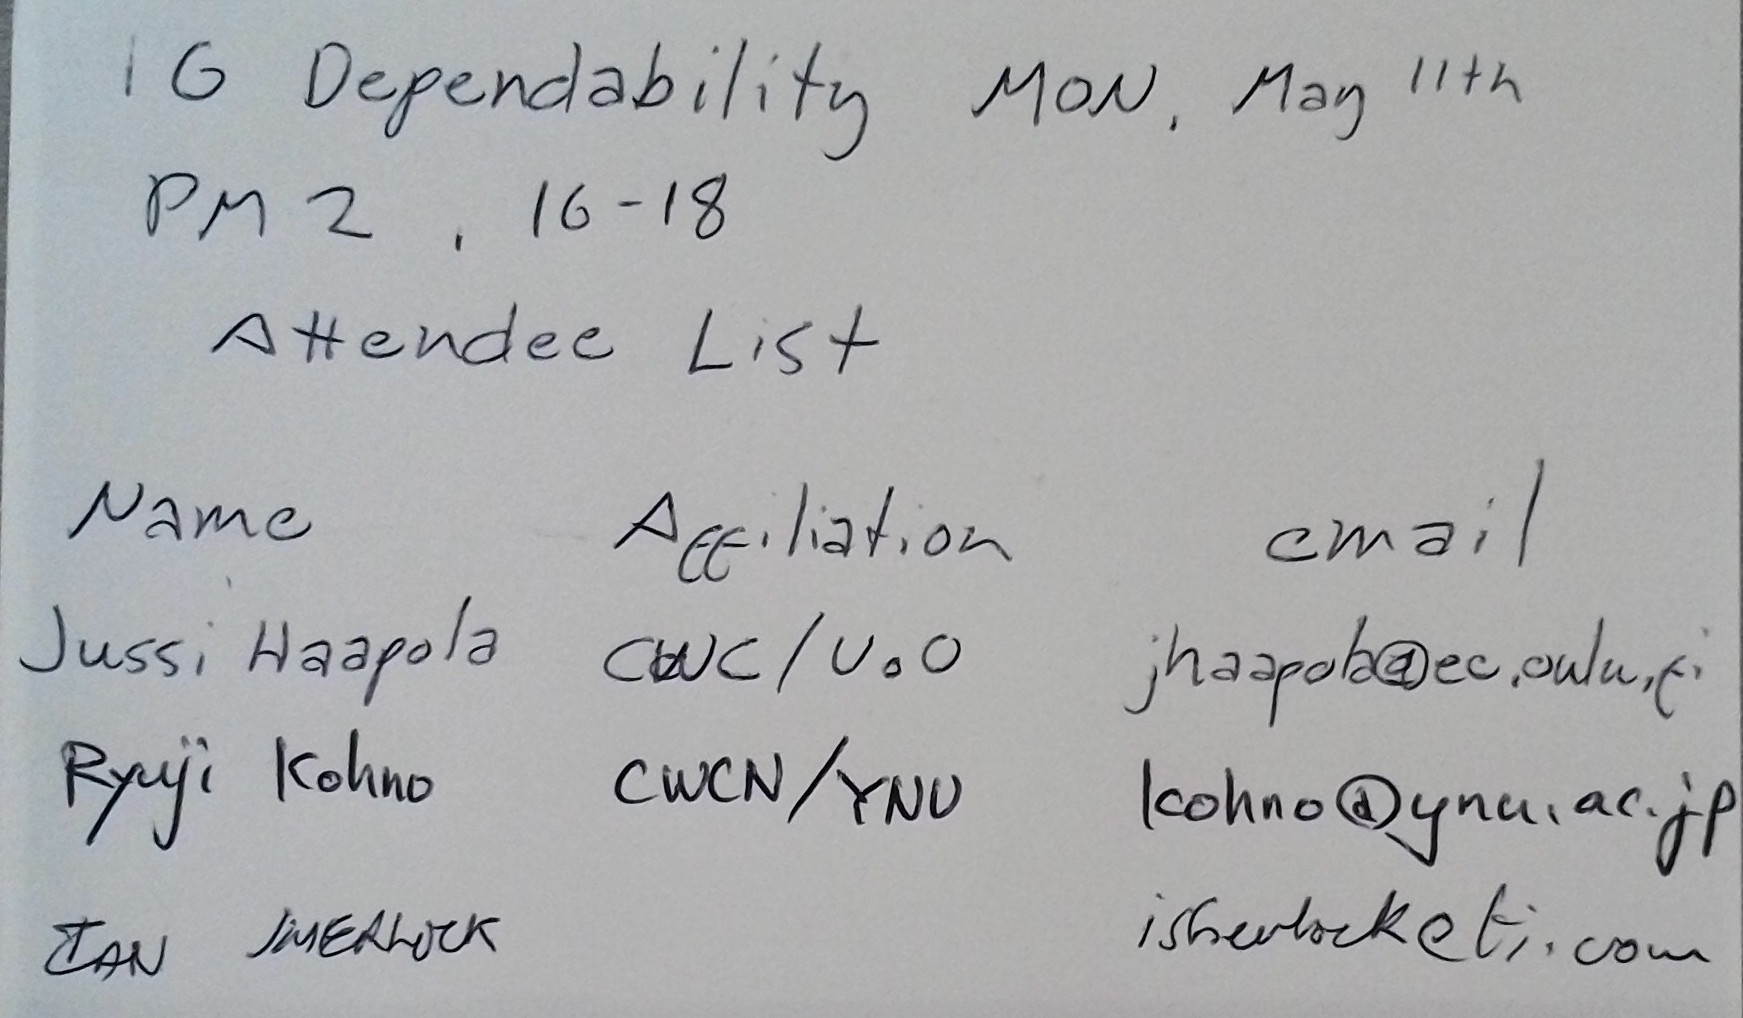 IG Dependability MON, May 11th
PM2, 16-18
Attendee List
Name Affiliation email
Jussi Haapola CWC/U.O jhaapola@ee.oulu.fi
Ryuji Kohno CWCN/YNU kohno@ynu.ac.jp
IAN SHERLOCK isherlock@ti.com